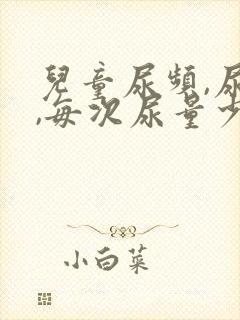 兒童尿頻,尿
,每次尿量少
小白菜